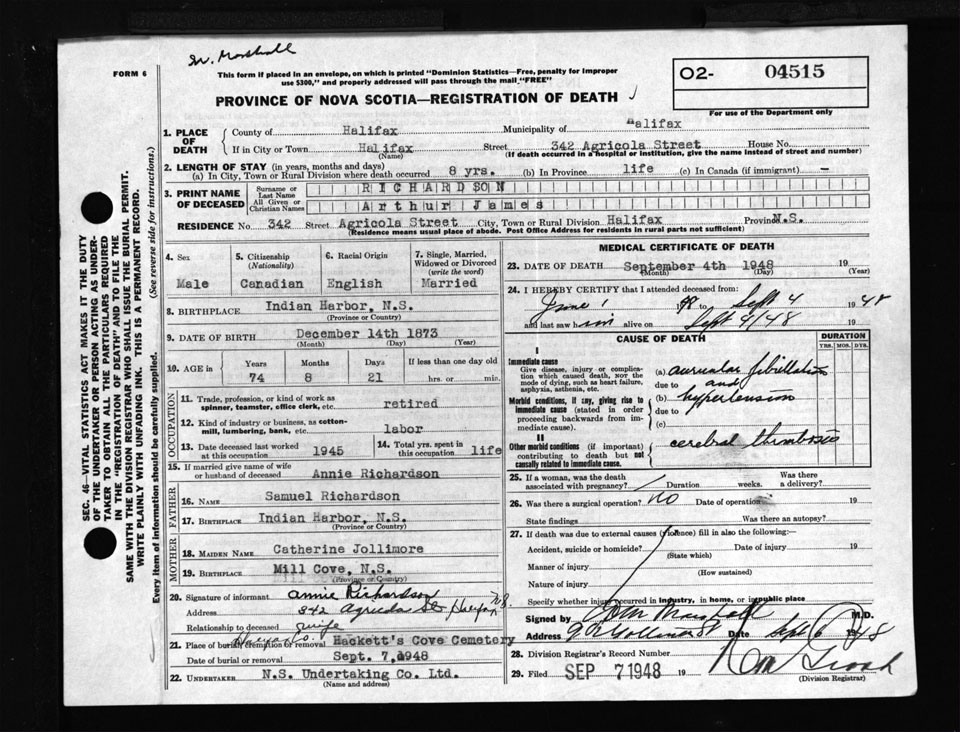 W. Marshall
FORM 6
This form if placed in an envelope, on which is printed "Dominion Statistics—Free, penalty for improper
use $300," and properly addressed will pass through the mail "FREE"
PROVINCE OF NOVA SCOTIA—REGISTRATION OF DEATH
O2- 04515
For use of the Department only
1. PLACE OF DEATH
County of Halifax Municipality of Halifax
If in City or Town Halifax Street 342 Agricola Street House No.
(Name) (If death occurred in a hospital or institution, give the name instead of street and number)
2. LENGTH OF STAY (in years, months and days)
(a) In City, Town or Rural Division where death occurred 8 yrs. (b) In Province life (c) In Canada (if immigrant) —
3. PRINT NAME OF DECEASED
Surname or Last Name RICHARDSON
All Given or Christian Names Arthur James
RESIDENCE No. 342 Street Agricola Street City, Town or Rural Division Halifax Province N.S.
(Residence means usual place of abode. Post Office Address for residents in rural parts not sufficient)
4. Sex 5. Citizenship (Nationality) 6. Racial Origin 7. Single, Married, Widowed or Divorced (write the word)
Male Canadian English Married
8. BIRTHPLACE Indian Harbor, N.S.
(Province or Country)
9. DATE OF BIRTH December 14th 1873
(Month) (Day) (Year)
10. AGE in Years Months Days If less than one day old
74 8 21 hrs. or min.
OCCUPATION
11. Trade, profession, or kind of work as spinner, teamster, office clerk, etc. retired
12. Kind of industry or business, as cotton-mill, lumbering, bank, etc. labor
13. Date deceased last worked at this occupation 1945 14. Total yrs. spent in this occupation life
15. If married give name of wife or husband of deceased Annie Richardson
FATHER
16. NAME Samuel Richardson
17. BIRTHPLACE Indian Harbor, N.S.
(Province or Country)
MOTHER
18. MAIDEN NAME Catherine Jollimore
19. BIRTHPLACE Mill Cove, N.S.
(Province or Country)
20. Signature of informant Annie Richardson
Address 342 Agricola St Halifax N.S.
Relationship to deceased wife
21. Place of burial, cremation or removal Halifax Co. Hackett's Cove Cemetery
Date of burial or removal Sept. 7, 1948
22. UNDERTAKER N.S. Undertaking Co. Ltd.
(Name and address)
MEDICAL CERTIFICATE OF DEATH
23. DATE OF DEATH September 4th 1948
(Month) (Day) (Year)
24. I HEREBY CERTIFY that I attended deceased from:
June 1 to Sept 4 1948
and last saw him alive on Sept 4/48 19
CAUSE OF DEATH
DURATION
YRS. MOS. DYS.
I
Immediate cause
Give disease, injury or complication which caused death, NOT the mode of dying, such as heart failure, asphyxia, asthenia, etc.
(a) auricular fibrillation
due to and
Morbid conditions, if any, giving rise to immediate cause (stated in order proceeding backwards from immediate cause).
(b) hypertension
due to
(c)
II
Other morbid conditions (if important) contributing to death but not causally related to immediate cause.
cerebral thrombosis
25. If a woman, was the death associated with pregnancy? Duration weeks. Was there a delivery?
26. Was there a surgical operation? no Date of operation 19
State findings Was there an autopsy?
27. If death was due to external causes (violence) fill in also the following:
Accident, suicide or homicide? Date of injury 19
(State which)
Manner of injury
(How sustained)
Nature of injury
Specify whether injury occurred in industry, in home, or in public place
Signed by Marshall M.D.
Address Date Sept 6 1948
28. Division Registrar's Record Number
29. Filed SEP 7 1948 19
(Division Registrar)
SEC. 46—VITAL STATISTICS ACT MAKES IT THE DUTY
OF THE UNDERTAKER OR PERSON ACTING AS UNDER-
TAKER TO OBTAIN ALL THE PARTICULARS REQUIRED
IN THE "REGISTRATION OF DEATH" AND TO FILE THE
SAME WITH THE DIVISION REGISTRAR WHO SHALL ISSUE THE BURIAL PERMIT.
WRITE PLAINLY WITH UNFADING INK. THIS IS A PERMANENT RECORD.
Every item of information should be carefully supplied. (See reverse side for instructions.)